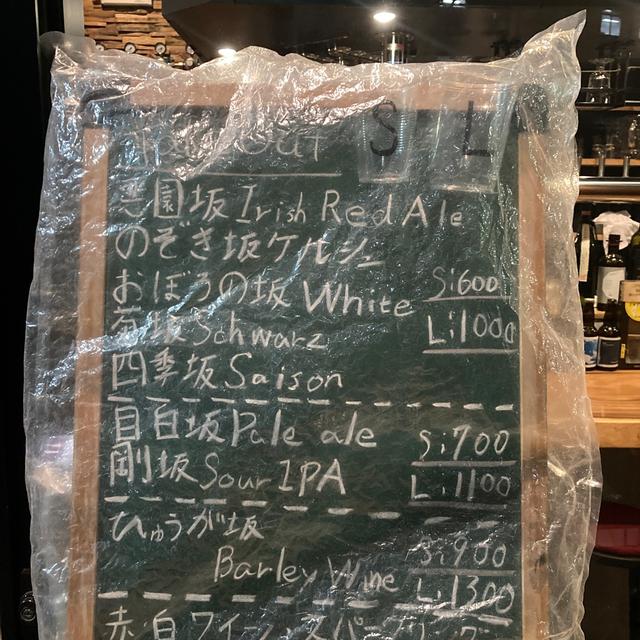 Take Out S L
園坂 Irish Red Ale
のぞき坂ケルシュ
おぼろの坂 White S:600
坂 Schwarz L:1000
四季坂 Saison
目白坂 Pale ale S:700
剛坂 Sour IPA L:1100
ひゅうが坂
Barley Wine S:900
L:1300
赤 白 ワイン スパー